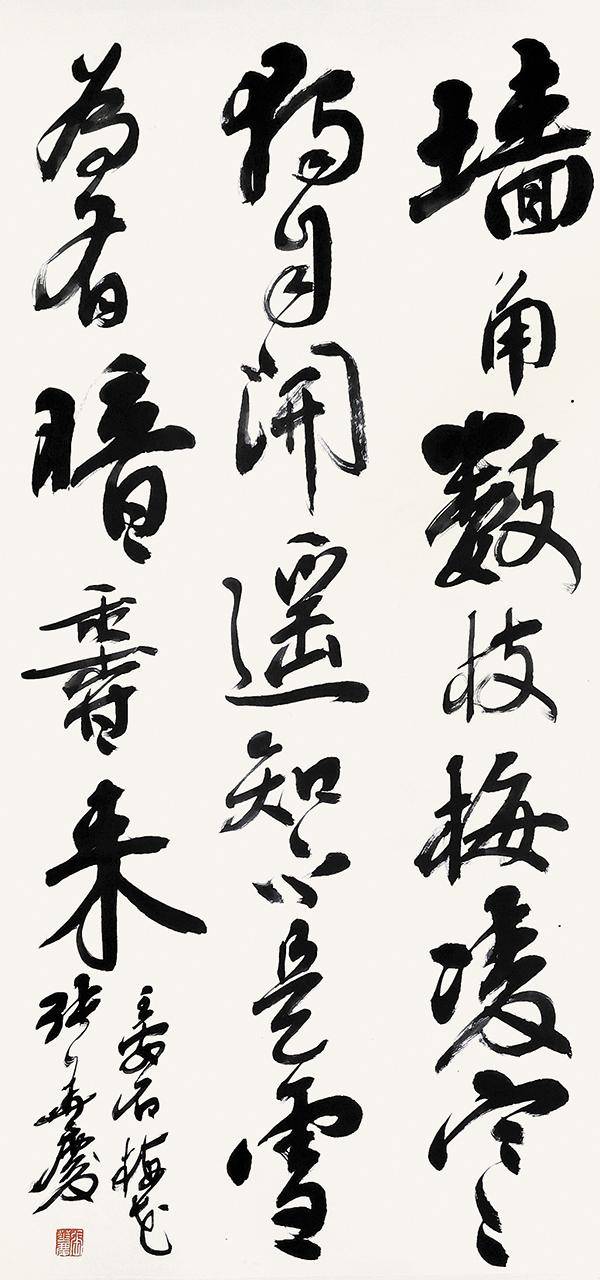 墙角数枝梅凌寒
独自开遥知不是雪
为有暗香来
王安石梅花
张华庆